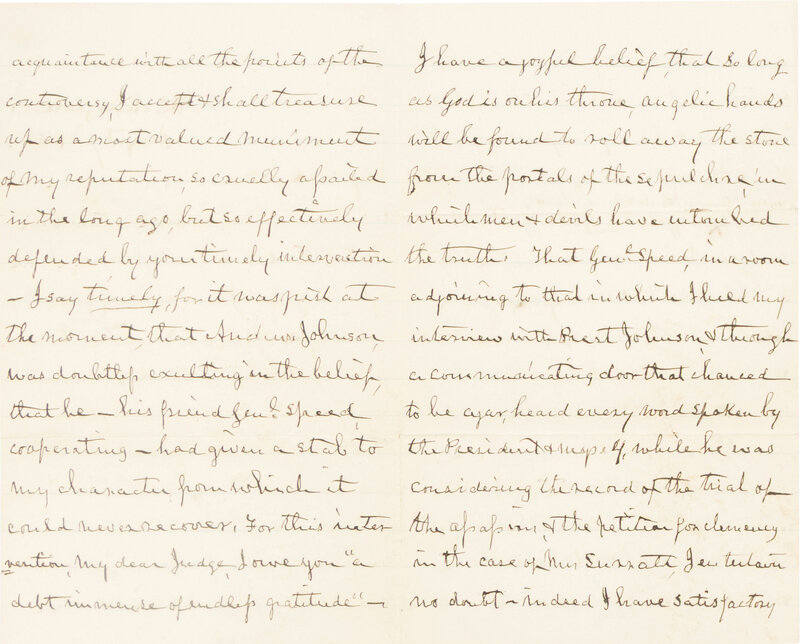 acquaintance with all the points of the
controversy, I accept & shall treasure
up as a most valued muniment
of my reputation, so cruelly assailed
in the long ago, but so effectively
defended by your timely intervention
- I say timely, for it was just at
the moment, that Andrew Johnson,
was doubtless exulting in the belief,
that he - his friend Genl. Speed,
cooperating - had given a stab to
my character from which it
could never recover. For this inter
vention, my dear Judge, I owe you "a
debt immense of endless gratitude" -
I have a joyful belief, that so long
as God is on his throne, angelic hands
will be found to roll away the stone
from the portals of the sepulchre, in
which men & devils have entombed
the truth. That Genl. Speed, in a room
adjoining to that in which I held my
interview with Prest Johnson, & through
a communicating door that chanced
to be ajar, heard every word spoken by
the President & myself, while he was
considering the record of the trial of
the assassins, & the petition for clemency
in the case of Mrs Surratt, I entertain
no doubt - indeed I have satisfactory